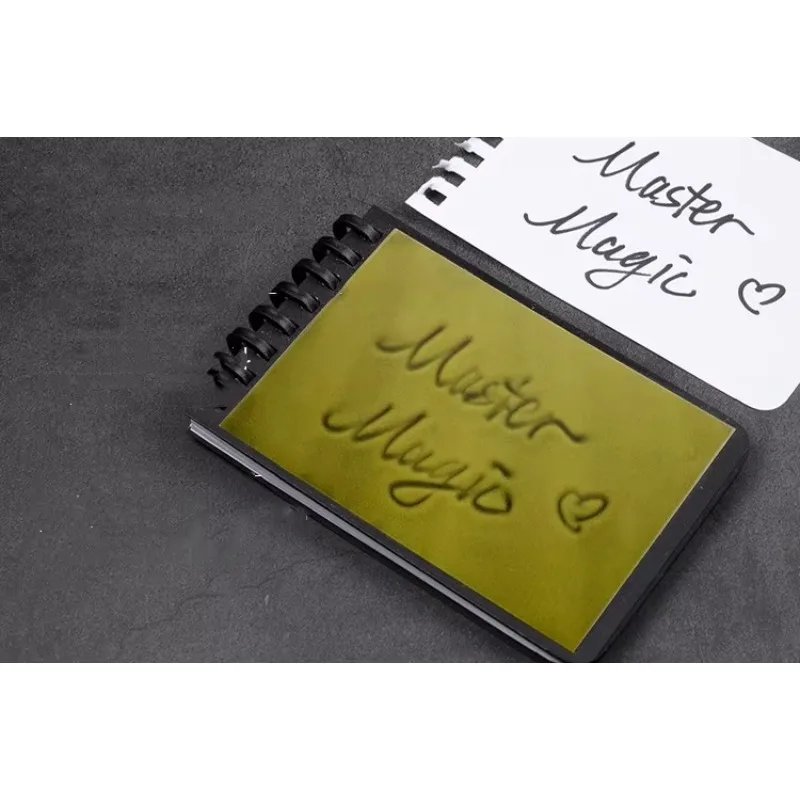 Master
Magic ♡
Master
Magic ♡